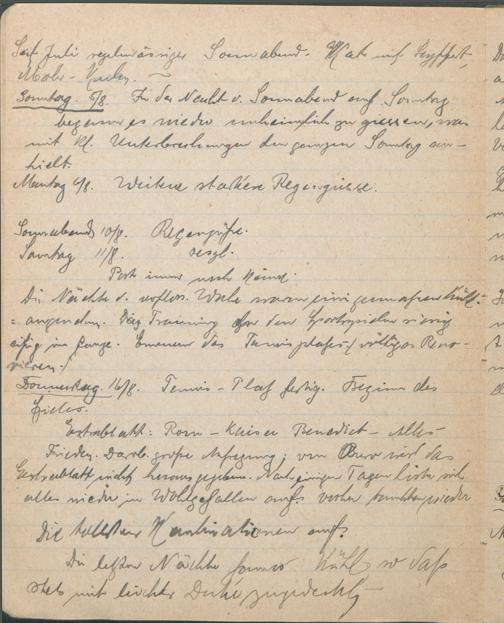 Seit Juli regelmässiger Sonnabend-
Sonntag 5/8. In der Nacht v. Sonnabend auf Sonntag
begann es wieder unheimlich zu giessen, was
mit kl. Unterbrechungen den ganzen Sonntag an-
hielt.
Montag 6/8. Weitere starkere Regengüsse.
Sonnabends 10/8. Regengüsse.
Sonntag 11/8. desgl.
Post immer noch keine.
Die Nächte d. verflos. Woche waren einigermassen kühl.
= angenehm. Das Training der den Sportspielen
eifrig im Gange. Erneuern des Tennisplatzes / völliges Reno-
vieren.
Donnerstag 16/8. Tennis-Platz fertig. Beginn des
Extrablatt: Rom - Kaiser Benedict - Alles
Frieden. Darob große Aufregung; vom Büro wird das
Extrablatt nicht herausgegeben. Nach einigen Tagen löste sich
alles wieder in Wohlgefallen auf. vorher tauchten wieder
Die tollsten Kombinationen auf.
Die letzten Nächte Kühl so daß
stets mit leichter Decke zugedeckt.